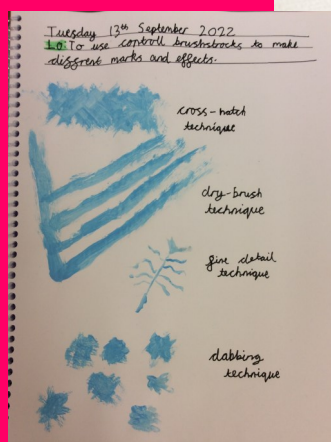 Tuesday 13th September 2022
L.O: To use controll brushstrocks to make
different marks and effects.
cross-hatch
technique
dry-brush
technique
fine detail
technique
dabbing
technique